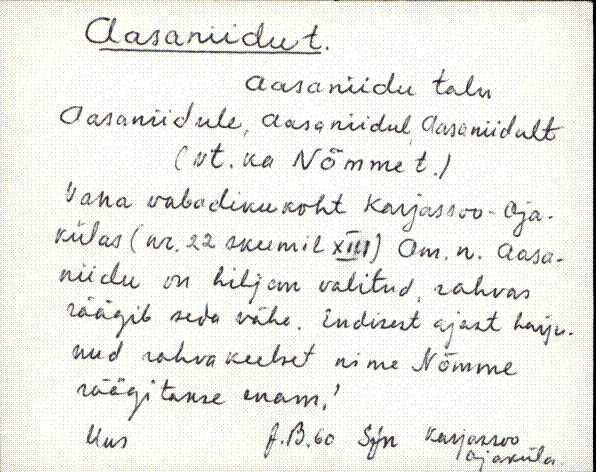 Aasaniidu t.
Aasaniidu talu
Aasaniidule, Aasaniidul, Aasaniidult
(vt. ka Nõmme t.)
Vana vabadikukoht Karjassoo-Oja-
külas (nr. 22 skeemil XIII) Am. n. Aasa-
niidu on hiljem valitud, rahvas
räägib seda vähe. Endisest ajast harju-
nud rahvakeelset nime Nõmme
räägitakse enam.
Kus J.B.60 Sjn Karjassoo
Ojaküla.